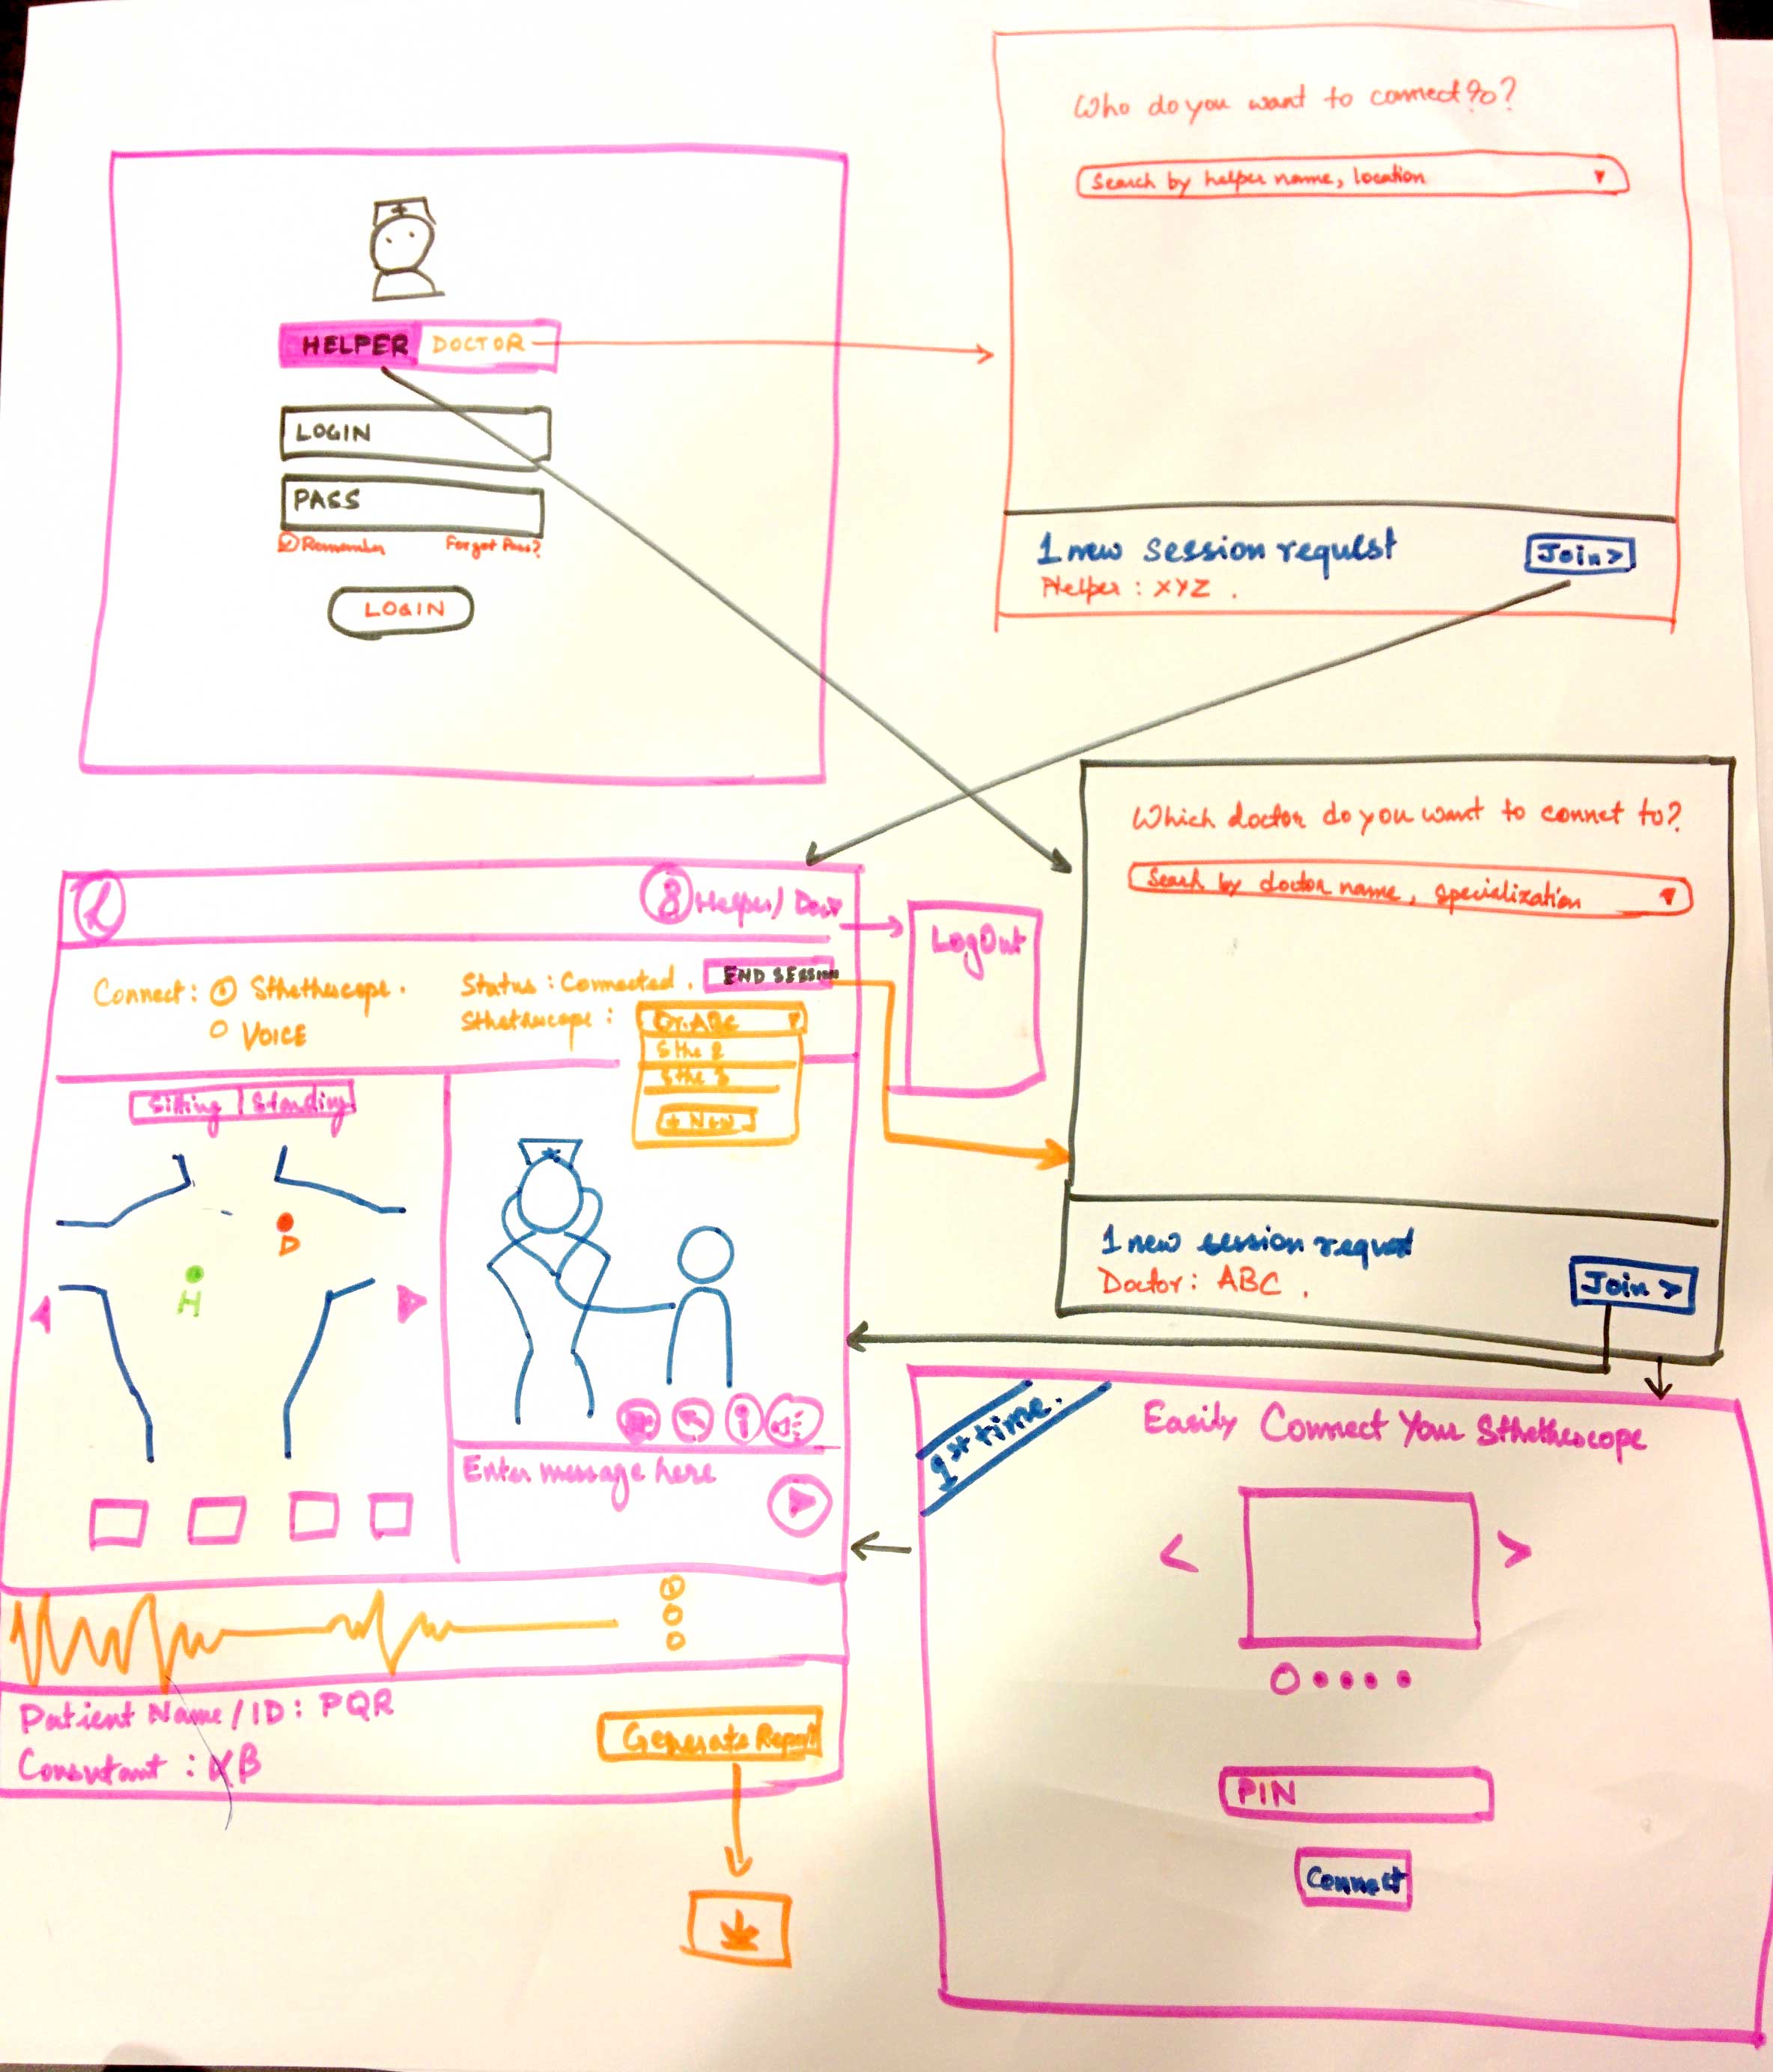 HELPER DOCTOR
LOGIN
PASS
Remember Forgot Pass?
LOGIN
Who do you want to connect to?
Search by helper name, location
1 new session request
Join >
Helper : XYZ .
Which doctor do you want to connet to?
Search by doctor name, specialization
1 new session request
Doctor : ABC .
Join >
Helper/
LogOut
Connect : Sthethescope .
VOICE
Status : Connected .
END SESSION
Sthethescope :
Dr. ABC
Sthe 2
Sthe 3
+ New
Sitting | Standing
D
H
Enter message here
Patient Name / ID : PQR
Generate Report
1st time.
Easily Connect Your Sthethescope
< >
PIN
Connect